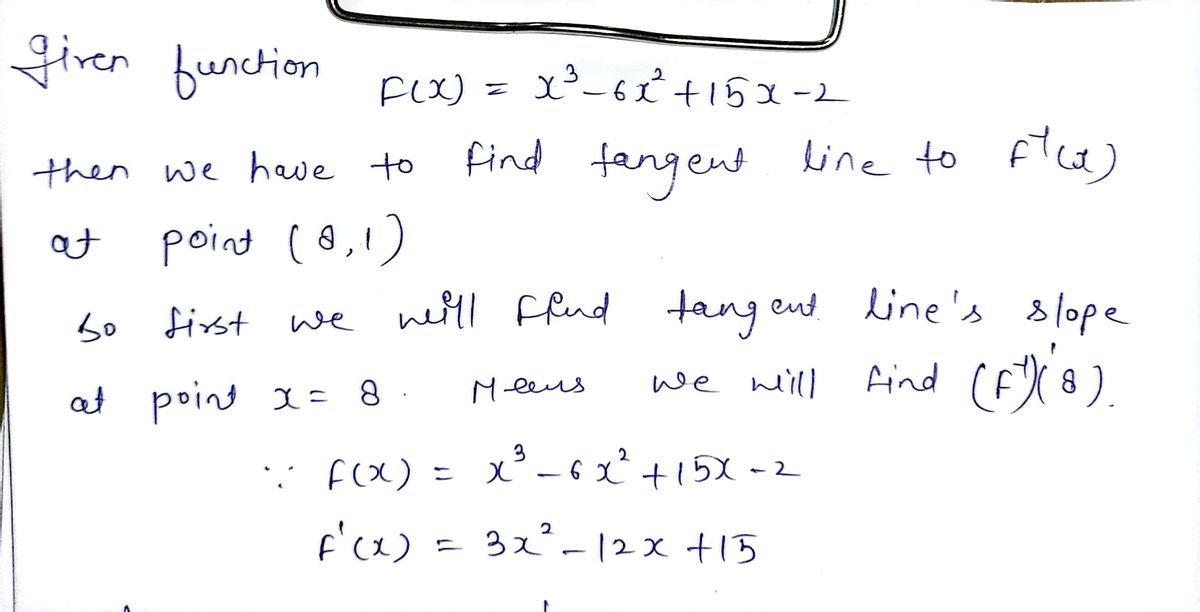 given function F(x) = x³-6x²+15x-2
then we have to find tangent line to f⁻¹(x)
at point (8,1)
so first we will ffind tangent line's slope
at point x = 8. Means we will find (F⁻¹)'(8).
∵ f(x) = x³-6x²+15x-2
f'(x) = 3x²-12x+15